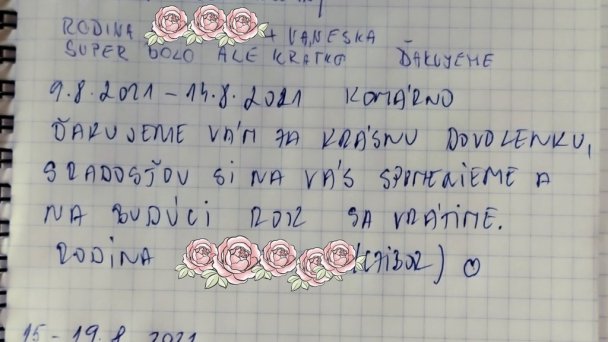 RODINA + VANESKA
SUPER BOLO ALE KRÁTKO ĎAKUJEME
9.8.2021 - 14.8.2021 KOMÁRNO
ĎAKUJEME VÁM ZA KRÁSNU DOVOLENKU,
S RADOSŤOU SI NA VÁS SPOMENIEME A
NA BUDÚCI ROK SA VRÁTIME.
RODINA (CZIBOR)
15 - 19.8. 2021